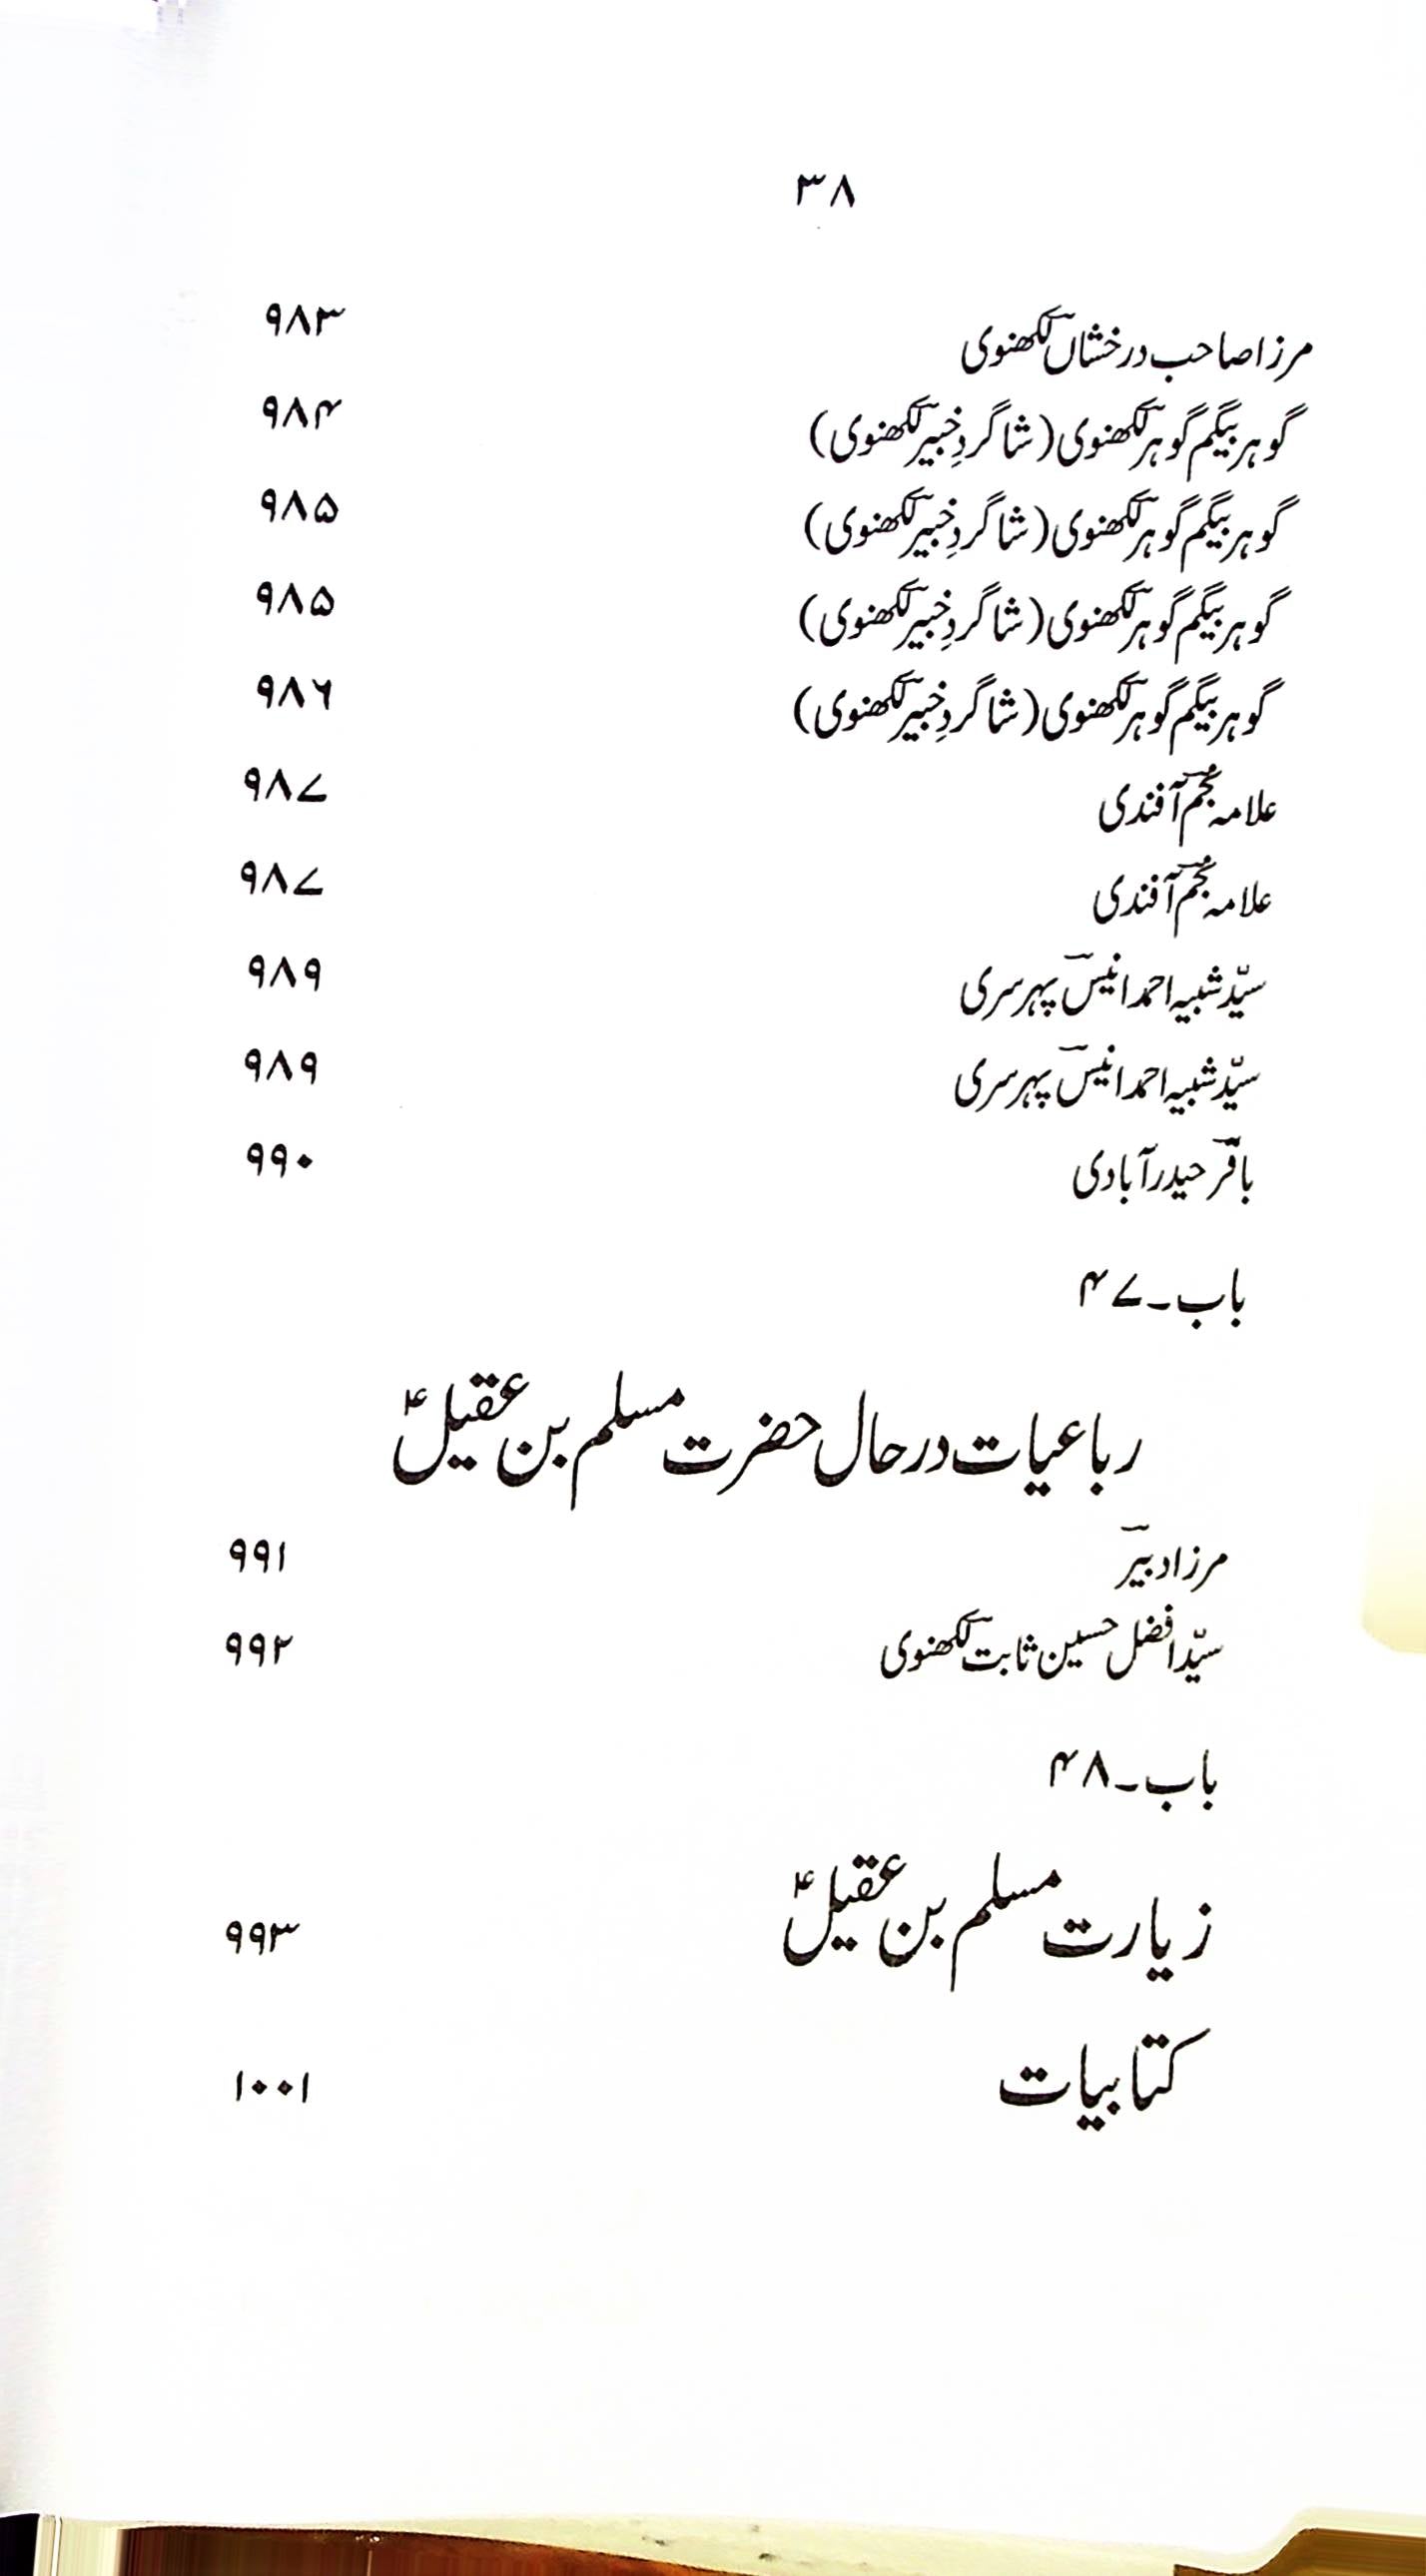 ۳۸
مرزا صاحب درخشاںؔ لکھنوی ۹۸۳
گوہر بیگم گوہرؔ لکھنوی (شاگردِ خبیرؔ لکھنوی) ۹۸۴
گوہر بیگم گوہرؔ لکھنوی (شاگردِ خبیرؔ لکھنوی) ۹۸۵
گوہر بیگم گوہرؔ لکھنوی (شاگردِ خبیرؔ لکھنوی) ۹۸۵
گوہر بیگم گوہرؔ لکھنوی (شاگردِ خبیرؔ لکھنوی) ۹۸۶
علامہ نجمؔ آفندی ۹۸۷
علامہ نجمؔ آفندی ۹۸۷
سیّد شبیہ احمد انیسؔ پہرسری ۹۸۹
سیّد شبیہ احمد انیسؔ پہرسری ۹۸۹
باقرؔ حیدرآبادی ۹۹۰
باب۔۴۷
رباعیات در حال حضرت مسلم بن عقیلؑ
مرزا دبیرؔ ۹۹۱
سیّد افضل حسین ثابتؔ لکھنوی ۹۹۲
باب۔۴۸
زیارت مسلم بن عقیلؑ ۹۹۳
کتابیات ۱۰۰۱